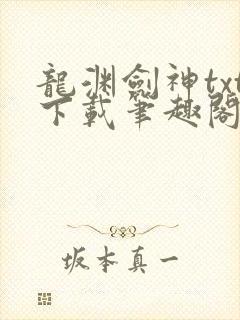 龍渊劍神txt
下載筆趣閣
坂本真一